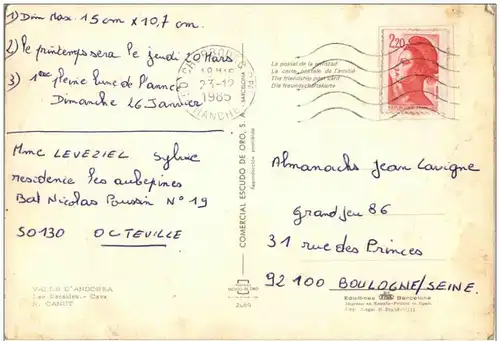 1) Dim Max. 15 cm x 10,7 cm.
2) le printemps sera le jeudi 20 Mars
3) 1ère pleine lune de l'anné
Dimanche 26 Janvier
Mme LEVEZIEL Sylvie
residence les aubepines
Bat Nicolas Poussin N° 19
50130 OCTEVILLE
VALLS D'ANDORRA
R. CANUT
23-12
1985
MANCHE
COMERCIAL ESCUDO DE ORO, S. A. BARCELONA
La postal de la amistad
La carte postale de l'amitié
The friendship post card
Die Freundschaftskarte
2,20
Almanachs Jean Lavigne
Grand jeu 86
31 rue des Princes
92100 BOULOGNE/SEINE.
Barcelona